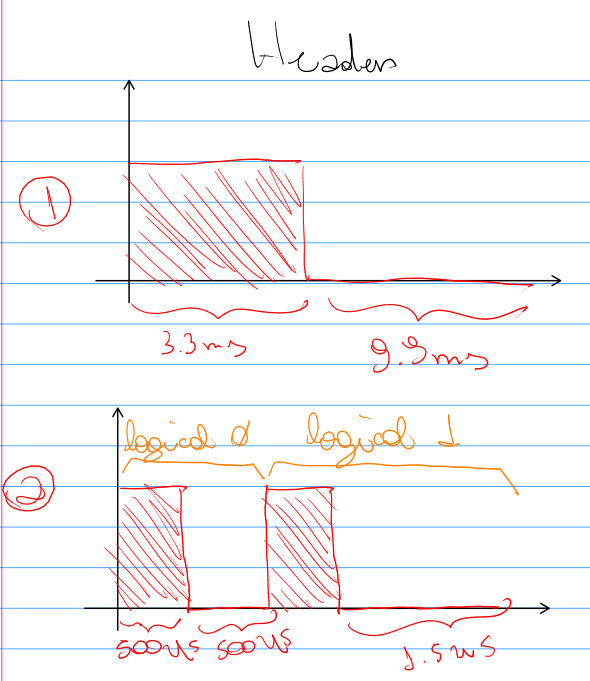 Headers
1
3.3ms
9.9ms
logical 0 logical 1
2
500us 500us
1.5ms